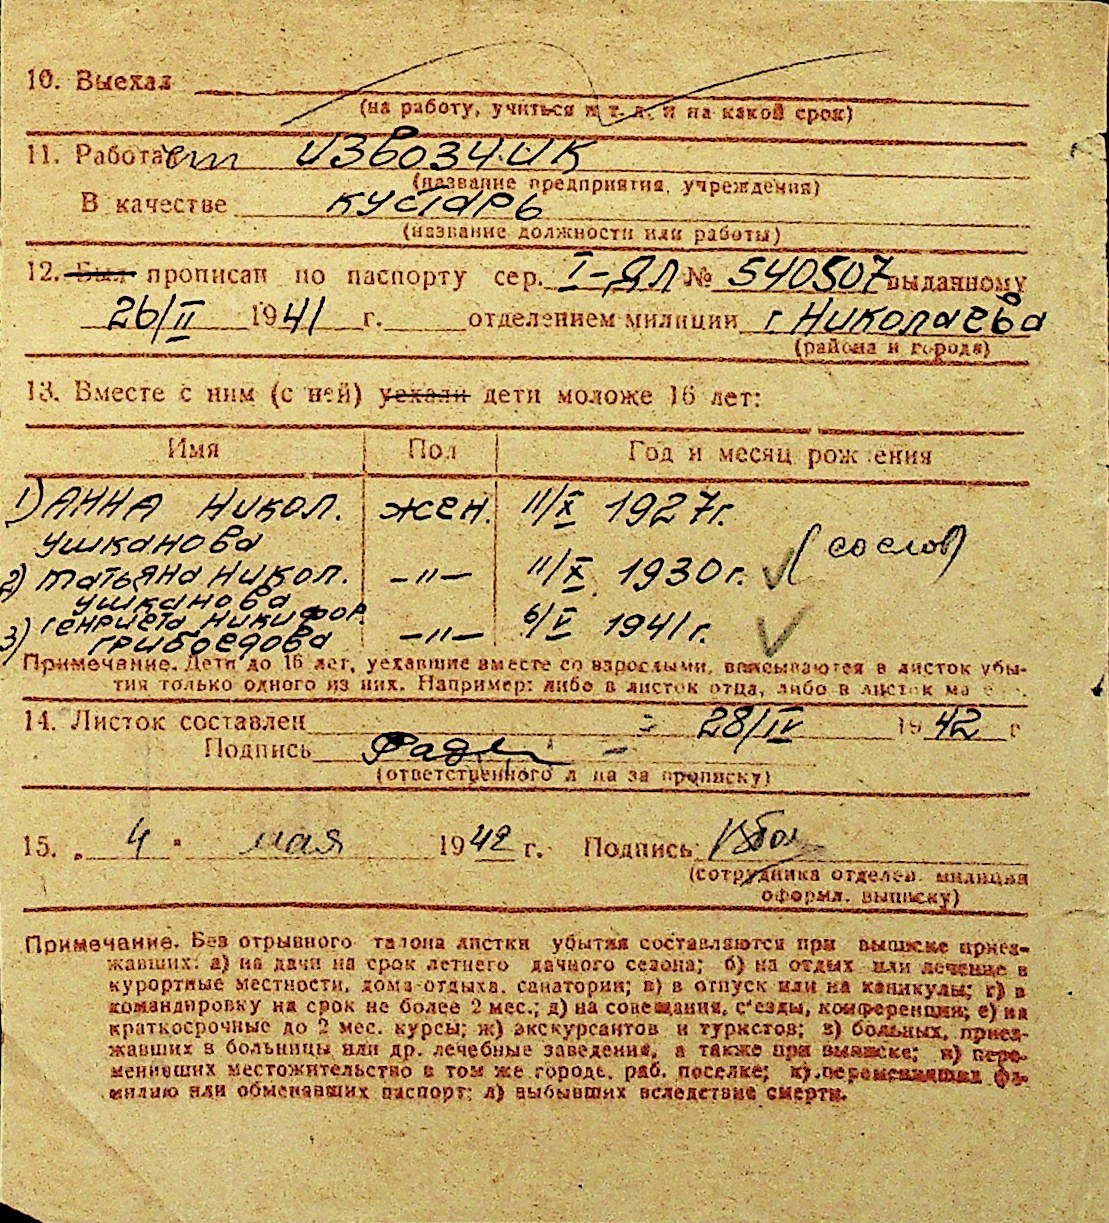 10. Выехал
(на работу, учиться и т. д. и на какой срок)
11. Работает извозчик
(название предприятия, учреждения)
В качестве кустарь
(название должности или работы)
12. Был прописан по паспорту сер. I-ЯЛ № 540507 выданному
26/II 1941 г. отделением милиции г. Николаева
(района и города)
13. Вместе с ним (с ней) уехали дети моложе 16 лет:
Имя Пол Год и месяц рождения
1) Анна Никол. жен. 11/X 1927 г.
Ушканова
2) Татьяна Никол. -"- 11/X 1930 г.
Ушканова
3) Генриета Никифор. -"- 6/V 1941 г.
Грибоедова
Примечание. Дети до 16 лет, уехавшие вместе со взрослыми, вписываются в листок убы-
тия только одного из них. Например: либо в листок отца, либо в листок
14. Листок составлен 28/IV 1942 г
Подпись
(ответственного лица за прописку)
15. „ 4 " мая 1942 г. Подпись
(сотрудника отделен. милиции
оформл. выписку)
Примечание. Без отрывного талона листки убытия составляются при выписке приез-
жавших: а) на дачи на срок летнего дачного сезона; б) на отдых или лечение в
курортные местности, дома отдыха, санатории; в) в отпуск или на каникулы; г) в
командировку на срок не более 2 мес.; д) на совещания, с'езды, конференции; е) на
краткосрочные до 2 мес. курсы; ж) экскурсантов и туристов; з) больных, приез-
жавших в больницы или др. лечебные заведения, а также при выписке; и) пере-
менивших местожительство в том же городе, раб. поселке; к) переменивших фа-
милию или обменявших паспорт; л) выбывших вследствие смерти.